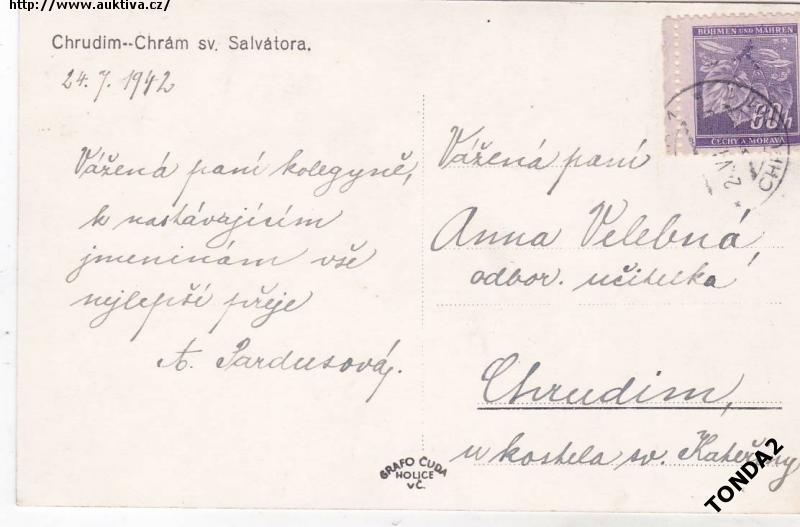 http://www.auktiva.cz/
Chrudim--Chrám sv. Salvátora.
24. 7. 1942
Vážená paní kolegyně,
k nastávajícím
jmeninám vše
nejlepší přeje
A. Pardusová.
BÖHMEN UND MÄHREN
60h
ČECHY A MORAVA
Vážená paní
Anna Velebná,
odbor. učitelka
Chrudim,
u kostela sv. Kateřiny
GRAFO ČUDA
HOLICE
v Č.
TONDA2